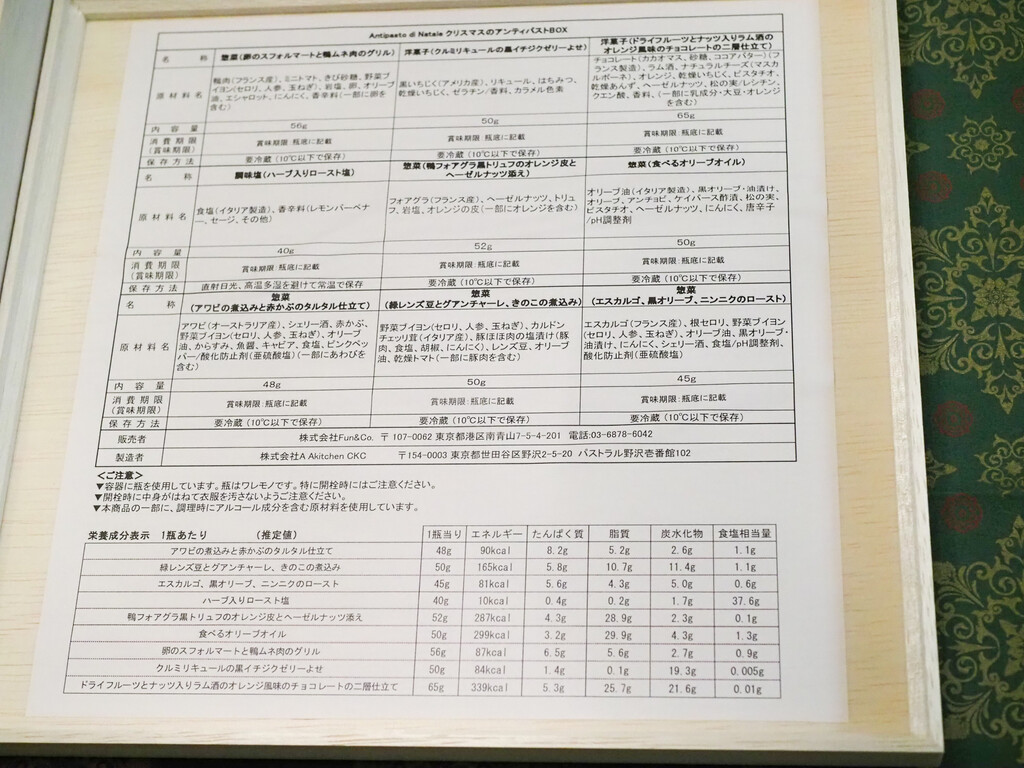 Antipasto di Natale クリスマスのアンティパストBOX
名　称　惣菜(卵のスフォルマートと鴨ムネ肉のグリル)　洋菓子(クルミリキュールの黒イチジクゼリーよせ)　洋菓子(ドライフルーツとナッツ入りラム酒の
オレンジ風味のチョコレートの二層仕立て)
原材料名
鴨肉(フランス産)、ミニトマト、きび砂糖、野菜ブ
イヨン(セロリ、人参、玉ねぎ)、岩塩、卵、オリーブ
油、エシャロット、にんにく、香辛料(一部に卵を
含む)
黒いちじく(アメリカ産)、リキュール、はちみつ、
乾燥いちじく、ゼラチン/香料、カラメル色素
チョコレート(カカオマス、砂糖、ココアバター)(フ
ランス製造)、ラム酒、ナチュラルチーズ(マスカ
ルポーネ)、オレンジ、乾燥いちじく、ピスタチオ、
乾燥あんず、ヘーゼルナッツ、松の実/レシチン、
クエン酸、香料、(一部に乳成分・大豆・オレンジ
を含む)
内容量　56g　50g　65g
消費期限
(賞味期限)　賞味期限:瓶底に記載　賞味期限:瓶底に記載　賞味期限:瓶底に記載
保存方法　要冷蔵(10℃以下で保存)　要冷蔵(10℃以下で保存)　要冷蔵(10℃以下で保存)
名　称　調味塩(ハーブ入りロースト塩)　惣菜(鴨フォアグラ黒トリュフのオレンジ皮と
ヘーゼルナッツ添え)　惣菜(食べるオリーブオイル)
原材料名
食塩(イタリア製造)、香辛料(レモンバーベナ
ー、セージ、その他)
フォアグラ(フランス産)、ヘーゼルナッツ、トリュ
フ、岩塩、オレンジの皮(一部にオレンジを含む)
オリーブ油(イタリア製造)、黒オリーブ・油漬け、
オリーブ、アンチョビ、ケイパース酢漬、松の実、
ピスタチオ、ヘーゼルナッツ、にんにく、唐辛子
/pH調整剤
内容量　40g　52g　50g
消費期限
(賞味期限)　賞味期限:瓶底に記載　賞味期限:瓶底に記載　賞味期限:瓶底に記載
保存方法　直射日光、高温多湿を避けて常温で保存　要冷蔵(10℃以下で保存)　要冷蔵(10℃以下で保存)
名　称　惣菜
(アワビの煮込みと赤かぶのタルタル仕立て)　惣菜
(緑レンズ豆とグアンチャーレ、きのこの煮込み)　惣菜
(エスカルゴ、黒オリーブ、ニンニクのロースト)
原材料名
アワビ(オーストラリア産)、シェリー酒、赤かぶ、
野菜ブイヨン(セロリ、人参、玉ねぎ)、オリーブ
油、からすみ、魚醤、キャビア、食塩、ピンクペッ
パー/酸化防止剤(亜硫酸塩)(一部にあわびを
含む)
野菜ブイヨン(セロリ、人参、玉ねぎ)、カルドン
チェッリ茸(イタリア産)、豚ほほ肉の塩漬け(豚
肉、食塩、胡椒、にんにく)、レンズ豆、オリーブ
油、乾燥トマト(一部に豚肉を含む)
エスカルゴ(フランス産)、根セロリ、野菜ブイヨン
(セロリ、人参、玉ねぎ)、オリーブ油、黒オリーブ・
油漬け、にんにく、シェリー酒、食塩/pH調整剤、
酸化防止剤(亜硫酸塩)
内容量　48g　50g　45g
消費期限
(賞味期限)　賞味期限:瓶底に記載　賞味期限:瓶底に記載　賞味期限:瓶底に記載
保存方法　要冷蔵(10℃以下で保存)　要冷蔵(10℃以下で保存)　要冷蔵(10℃以下で保存)
販売者　株式会社Fun&Co.　〒107-0062 東京都港区南青山7-5-4-201　電話:03-6878-6042
製造者　株式会社A Akitchen CKC　〒154-0003 東京都世田谷区野沢2-5-20 パストラル野沢壱番館102
<ご注意>
▼容器に瓶を使用しています。瓶はワレモノです。特に開栓時にはご注意ください。
▼開栓時に中身がはねて衣服を汚さないようご注意ください。
▼本商品の一部に、調理時にアルコール成分を含む原材料を使用しています。
栄養成分表示　1瓶あたり　(推定値)　1瓶当り　エネルギー　たんぱく質　脂質　炭水化物　食塩相当量
アワビの煮込みと赤かぶのタルタル仕立て　48g　90kcal　8.2g　5.2g　2.6g　1.1g
緑レンズ豆とグアンチャーレ、きのこの煮込み　50g　165kcal　5.8g　10.7g　11.4g　1.1g
エスカルゴ、黒オリーブ、ニンニクのロースト　45g　81kcal　5.6g　4.3g　5.0g　0.6g
ハーブ入りロースト塩　40g　10kcal　0.4g　0.2g　1.7g　37.6g
鴨フォアグラ黒トリュフのオレンジ皮とヘーゼルナッツ添え　52g　287kcal　4.3g　28.9g　2.3g　0.1g
食べるオリーブオイル　50g　299kcal　3.2g　29.9g　4.3g　1.3g
卵のスフォルマートと鴨ムネ肉のグリル　56g　87kcal　6.5g　5.6g　2.7g　0.9g
クルミリキュールの黒イチジクゼリーよせ　50g　84kcal　1.4g　0.1g　19.3g　0.005g
ドライフルーツとナッツ入りラム酒のオレンジ風味のチョコレートの二層仕立て　65g　339kcal　5.3g　25.7g　21.6g　0.01g